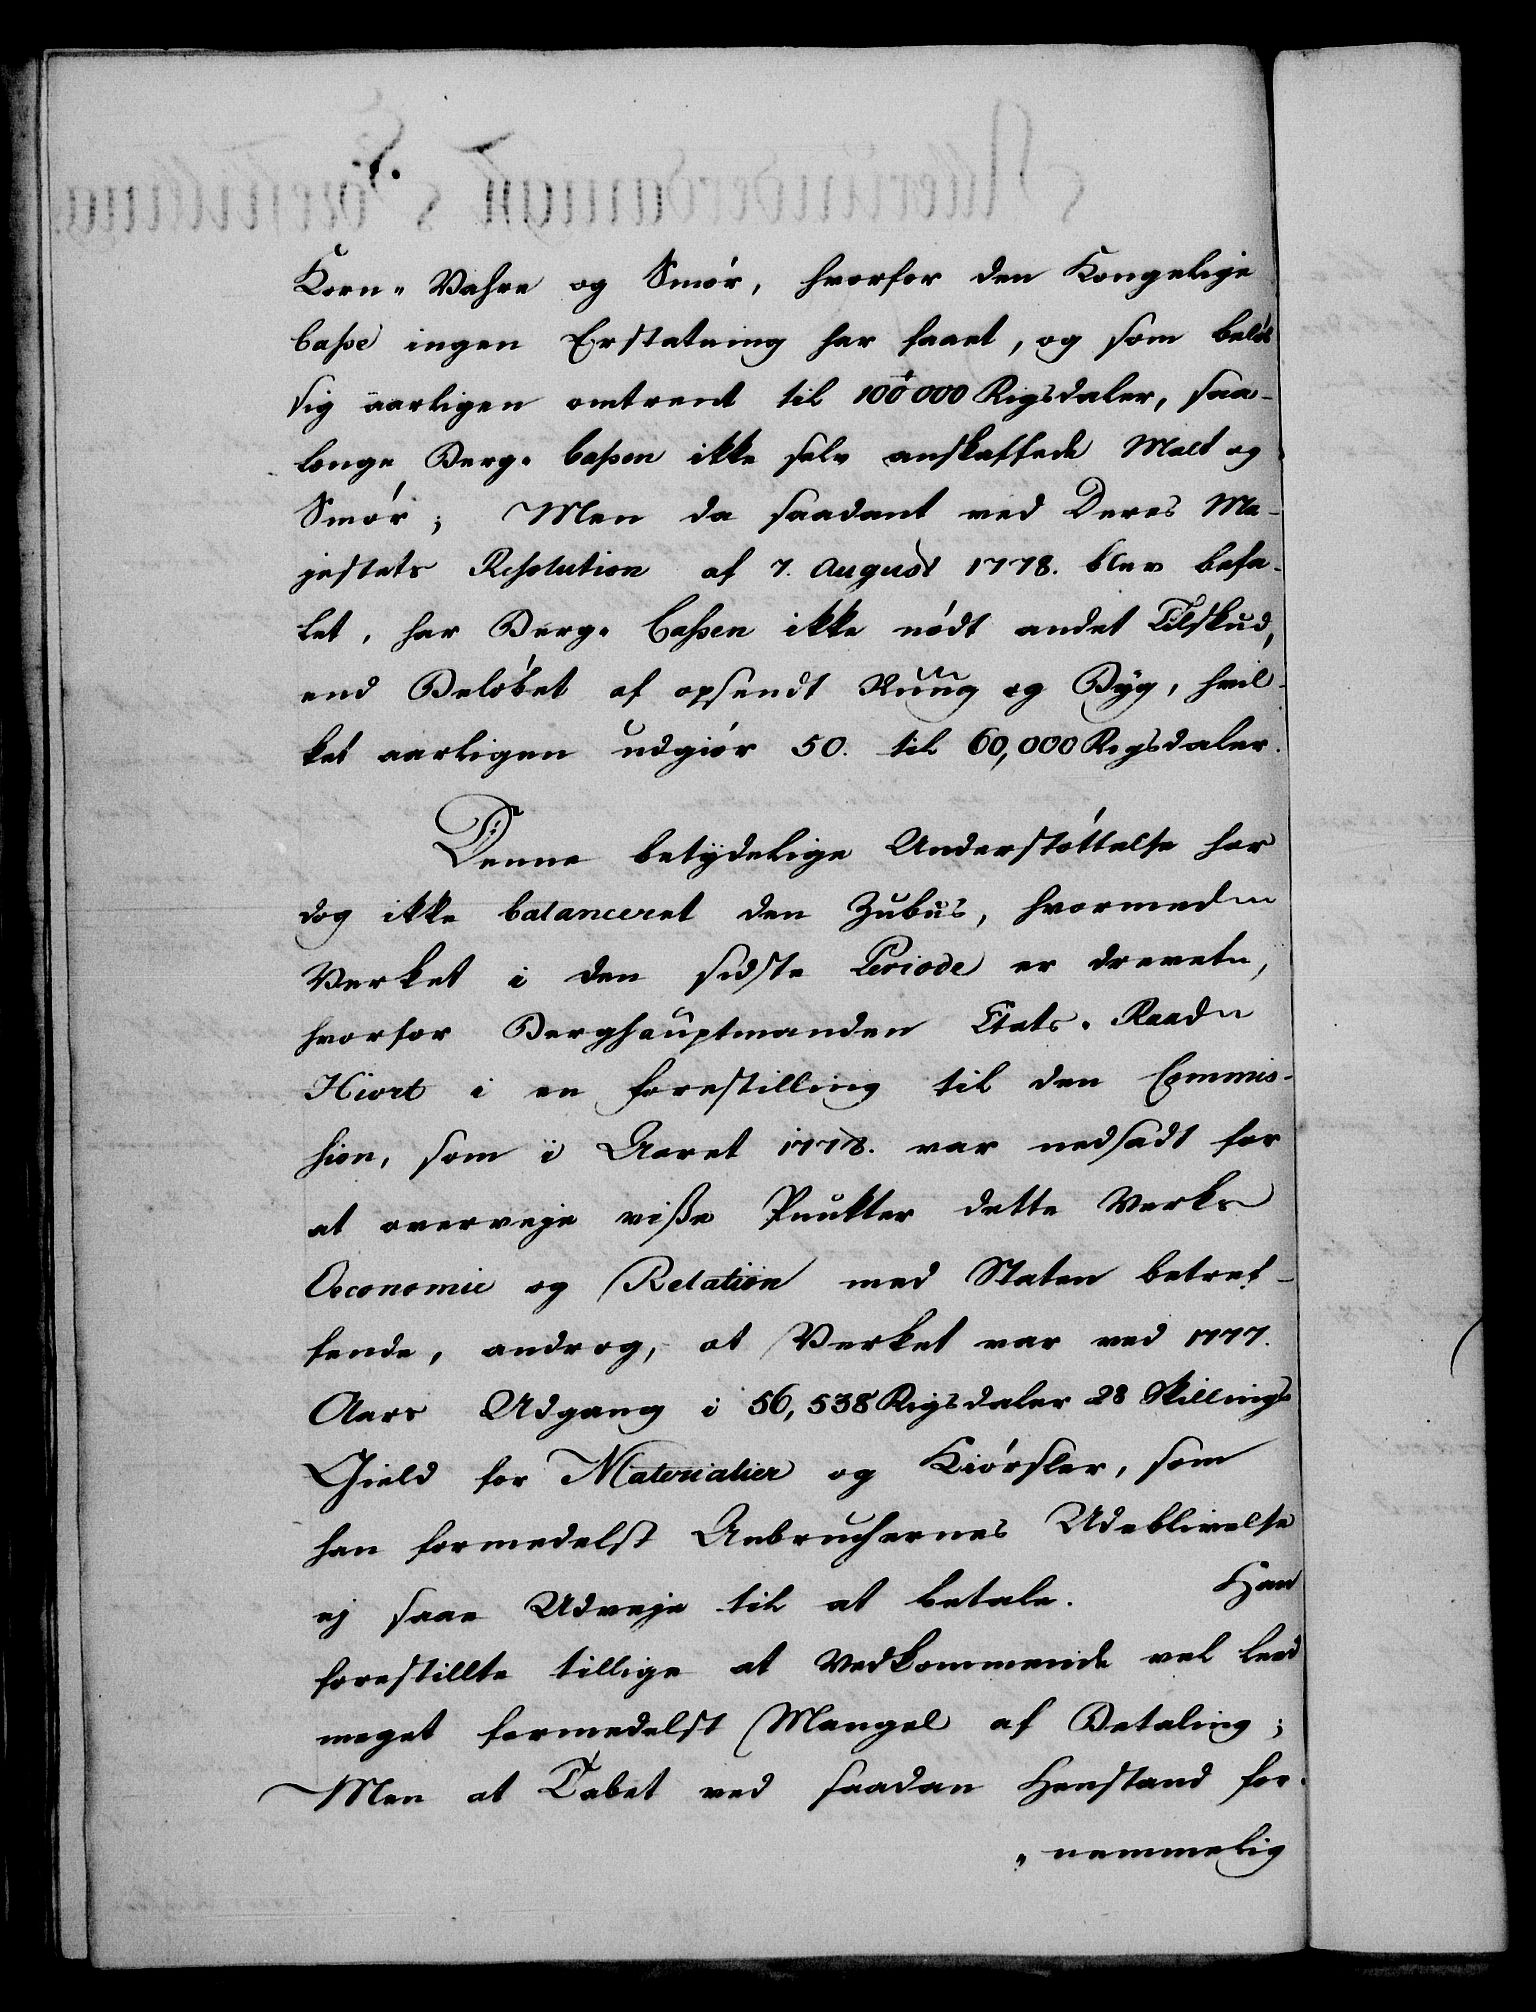 Korn- Vahre og Smør, hvorfor den Kongelige
Casse ingen Erstatning har faaet, og som beløb
sig aarligen omtrent til 100000 Rigsdaler, saa-
længe Berg- Cassen ikke selv anskaffede Malt og
Smør; Men da saadant ved Deres Ma-
jestets Resolution af 7. August 1778. blev befa-
let, har Berg- Cassen ikke nødt andet Tilskud,
end Beløbet af opsendt Ruug og Byg, hvil-
ket aarligen udgiør 50. til 60,000 Rigsdaler.
Denne betydelige Understøttelse har
dog ikke balanceret den Zubus, hvormed
Verket i den sidste Periode er drevet,
hvorfor Berghauptmanden Etats- Raad
Hiort i en forestilling til den Commis-
sion, som i Aaret 1778. var nedsadt for
at overveje visse Punkter dette Verks
Oeconomie og Relation med Staten betref-
fende, androg, at Verket var ved 1777.
Aars Udgang i 56,538 Rigsdaler 28 Skillings
Gield for Materialier og Kiørsler, som
han formedelst Anbruchernes Udeblivelse
ej saae Udveje til at betale. Han
forestillte tillige at Vedkommende vel leed
meget formedelst Mangel af Betaling;
Men at Tabet ved saadan Henstand for-
nemmelig